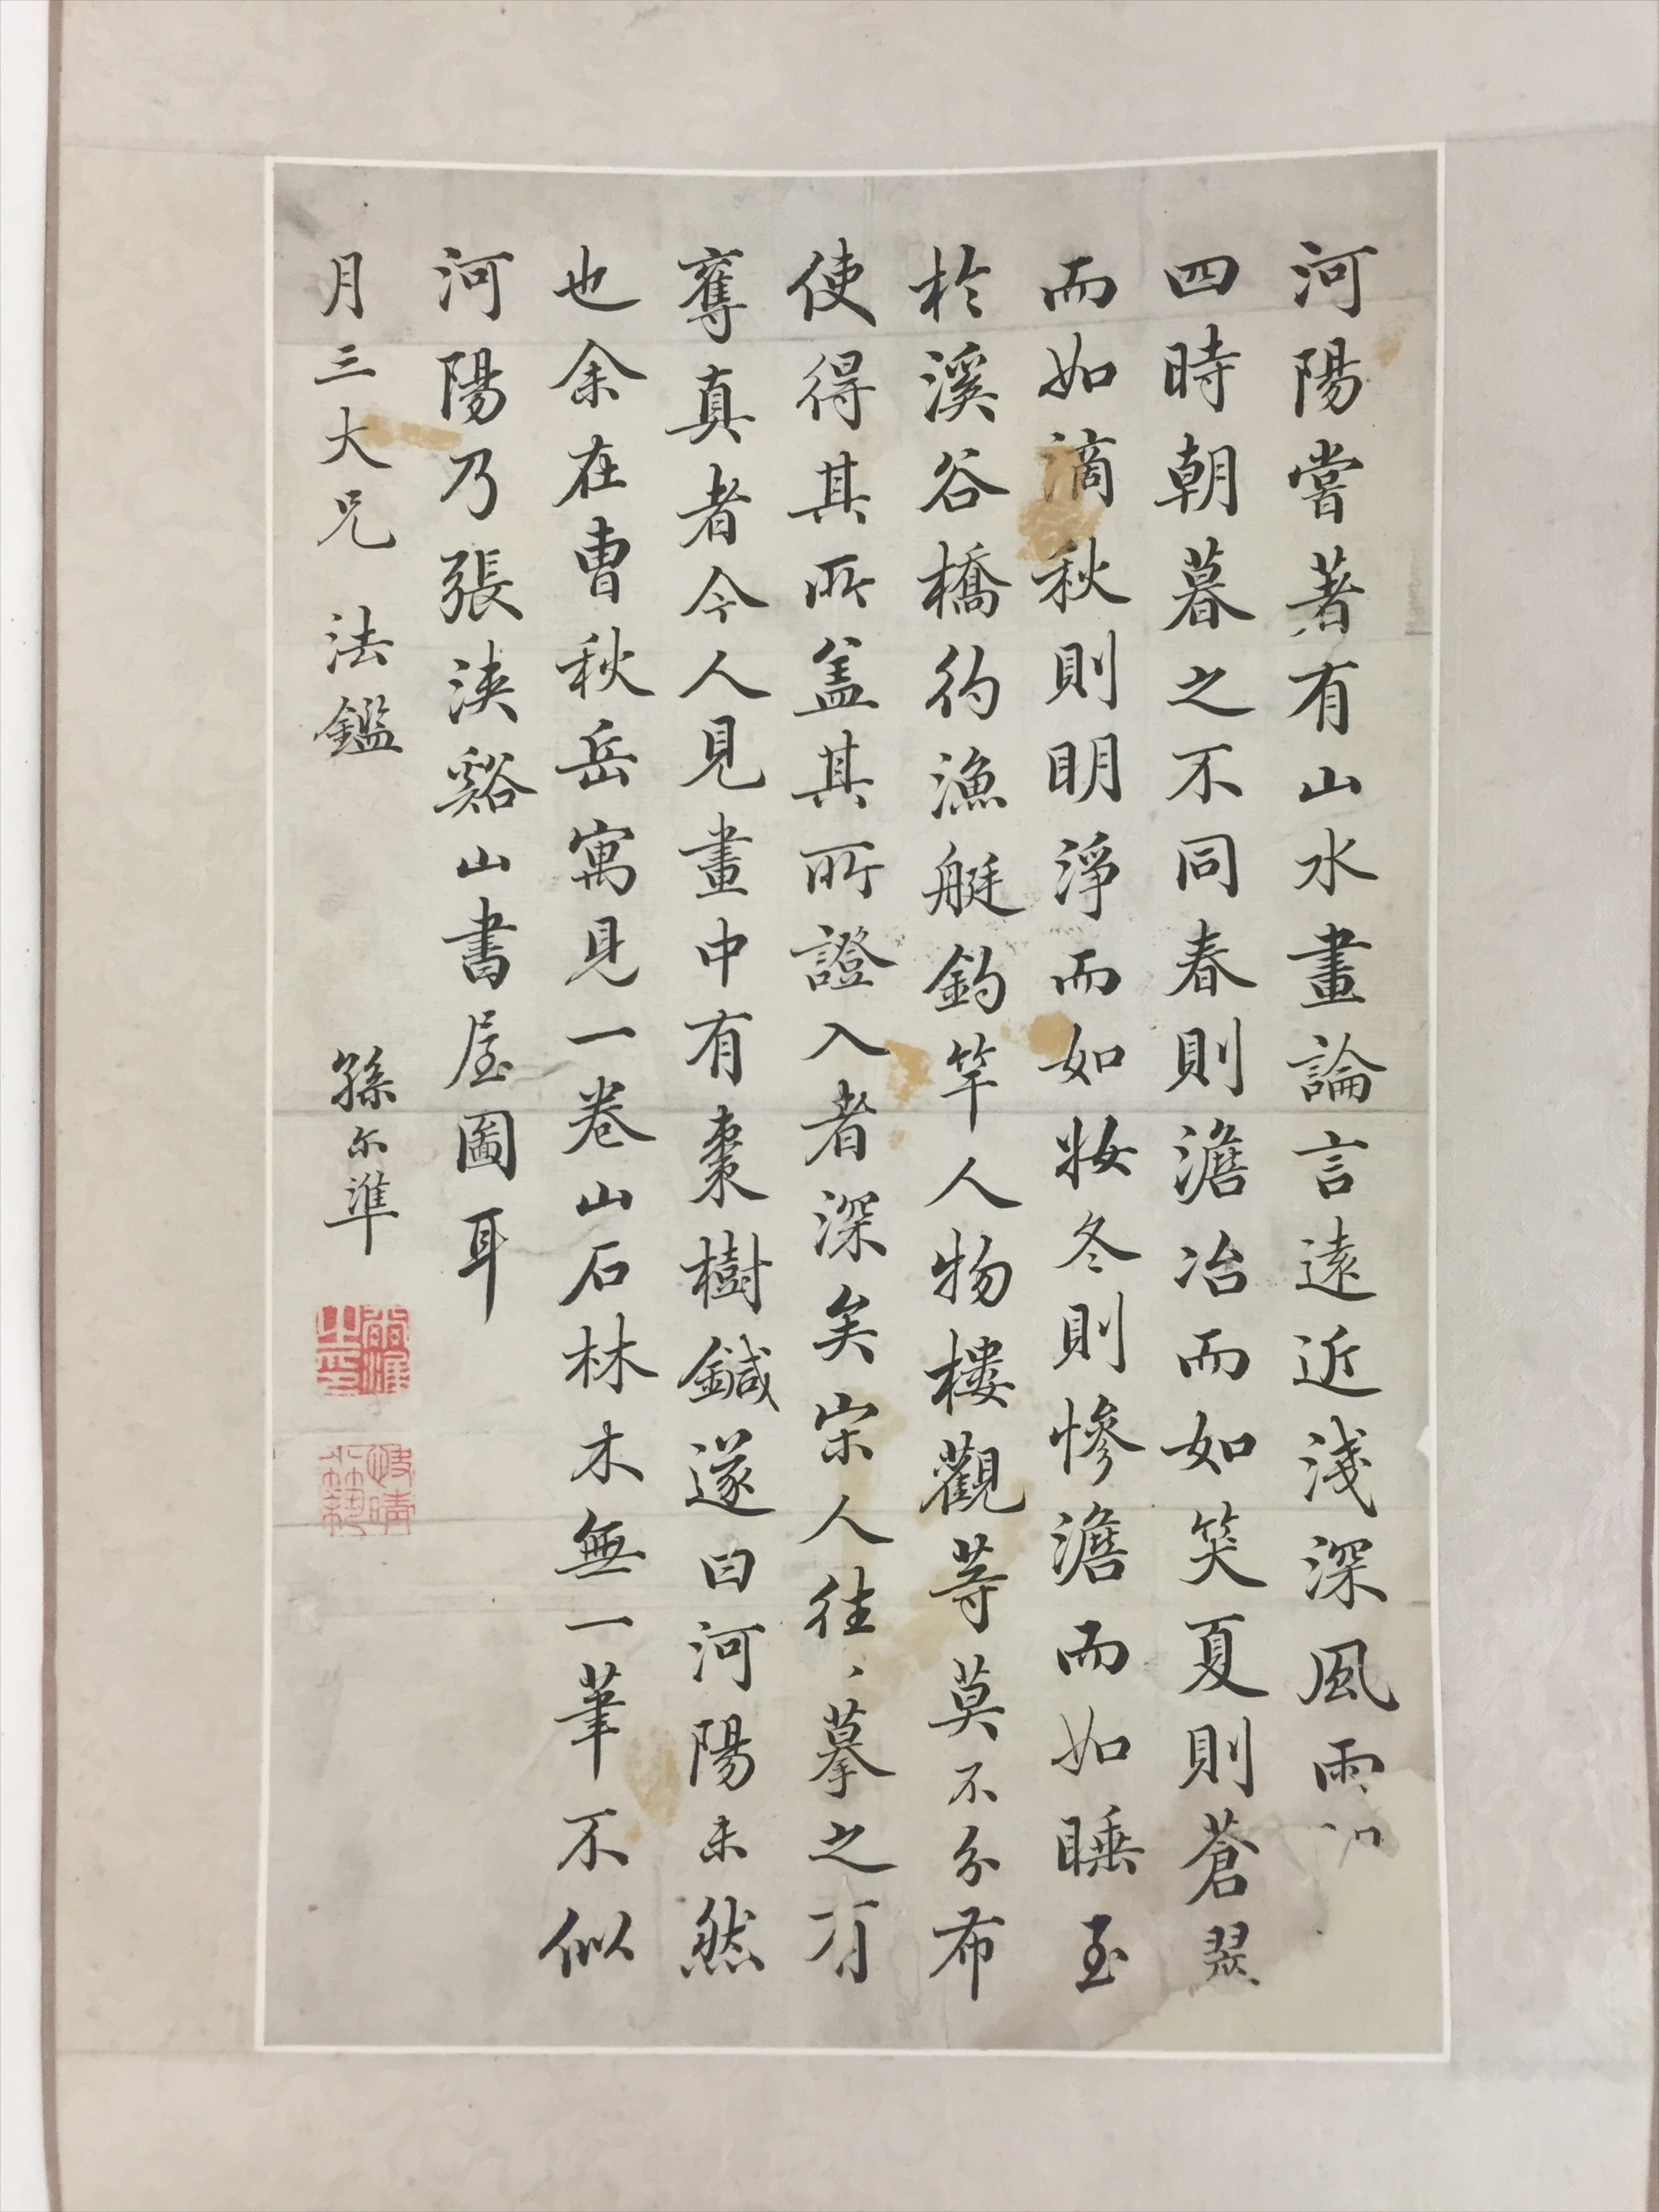 河陽嘗著有山水畫論言遠近淺深風雨
四時朝暮之不同春則澹冶而如笑夏則蒼翠
而如滴秋則明淨而如妝冬則慘澹而如睡至
於溪谷橋彴漁艇釣竿人物樓觀等莫不分布
使得其所盖其所證入者深矣宋人往〻摹之有
奪真者今人見畫中有棗樹鍼遂曰河陽未然
也余在曹秋岳寓見一卷山石林木無一筆不似
河陽乃張浹谿山書屋圖耳
月三大兄 法鑑
孫尔準